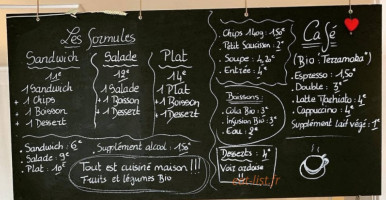 Les formules
Sandwich
11€
1 Sandwich
+ 1 Chips
+ 1 Boisson
+ 1 Dessert
Salade
12€
1 Salade
+ 1 Boisson
+ 1 Dessert
Plat
14€
1 Plat
+ 1 Boisson
+ 1 Dessert
. Sandwich : 6€
. Salade : 9€
. Plat : 10€
. Supplément alcool : 1,50€
Tout est cuisiné maison !!!
Fruits et légumes Bio
. Chips 140g : 1,50€
. Petit Saucisson : 2€
. Soupe : 4,20€
. Entrée : 4€
Boissons :
. Cola Bio : 3€
. Infusion Bio : 3€
. Eau : 2€
Desserts : 4€
Voir ardoise
!!!
Café
(Bio : Terramoka)
. Espresso : 1,50€
. Double : 3€
. Latte Machiato : 4€
. Cappuccino : 4€
Supplément lait végé : 1€